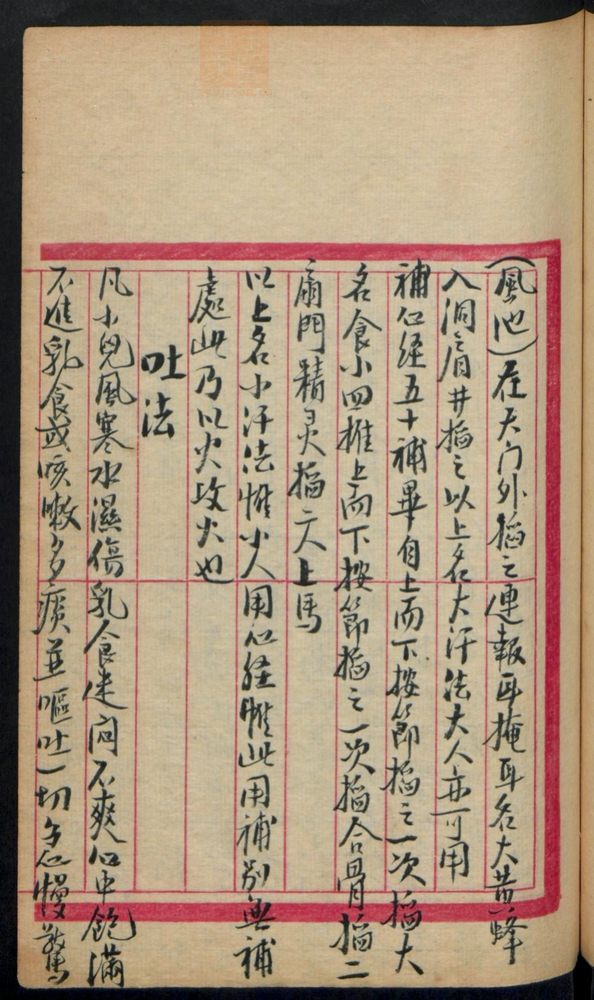 (風池)在天门外掐之連報耳掩耳名大黄蜂
入洞之肩井掐之以上名大汗法大人亦可用
補心经五十補畢自上而下按節掐之一次掐大
名食小四推上而下按節掐之一次掐合骨掐二
扇門精灵掐六上馬
以上名小汗法惟小人用心经惟此用補别無補
處此乃以火攻火也
吐法
凡小兒風寒水濕傷乳食迷闷不爽心中飽滿
不進乳食或咳嗽多痰並嘔吐一切午心慢驚